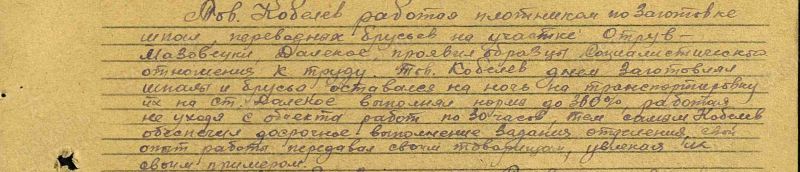 Тов. Кобелев работая плотником по заготовке
шпал, переводных брусьев на участке Отруб-
Мазовецки Далекое, проявил образцы социалистического
отношения к труду. Тов. Кобелев днем заготовлял
шпалы и брусья оставался на ночь на транспортировку
их на ст. Далекое выполнял норма до 300% работая
не уходя с объекта работ по 30 часов, тем самым Кобелев
обеспечил досрочное выполнение задания отделения, свой
опыт работы передавал своим товарищам, увлекая их
своим примером.